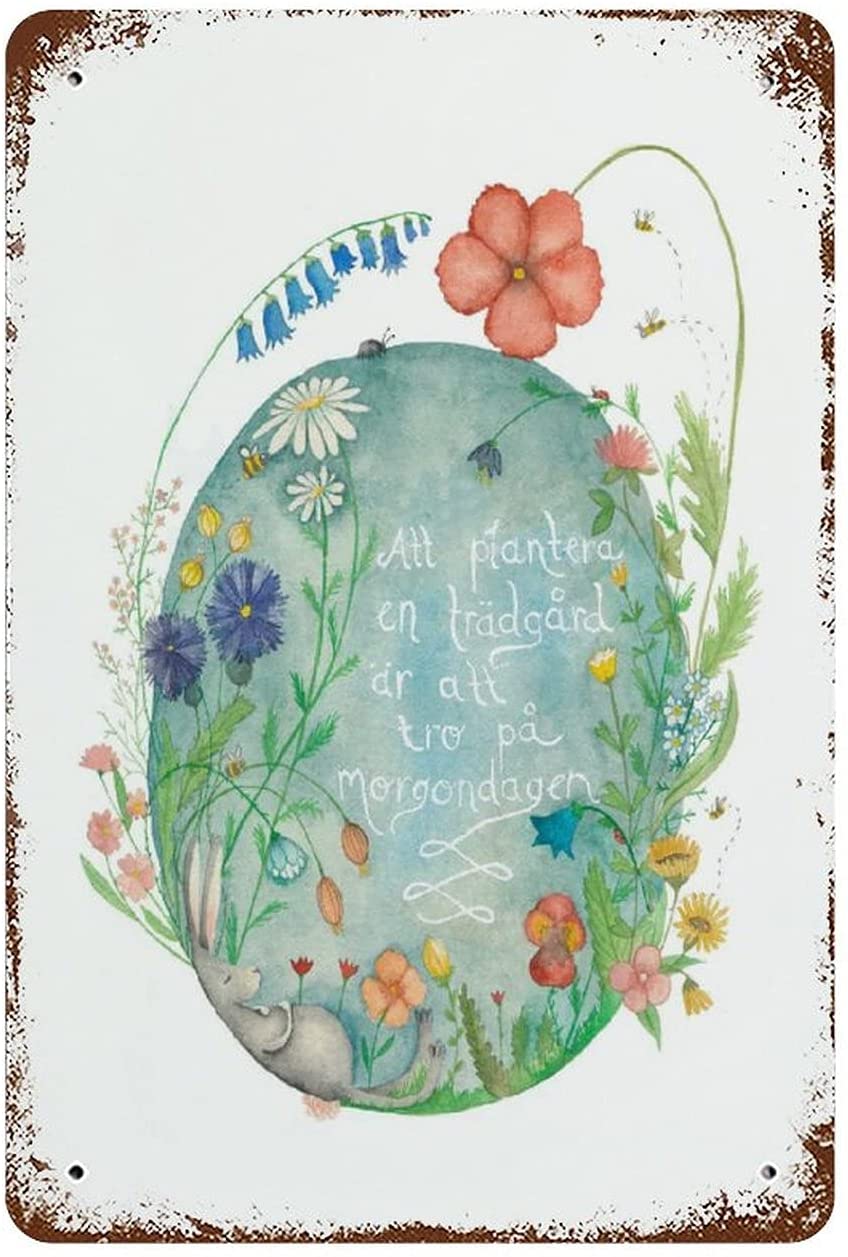 Att plantera
en trädgård
är att
tro på
morgondagen